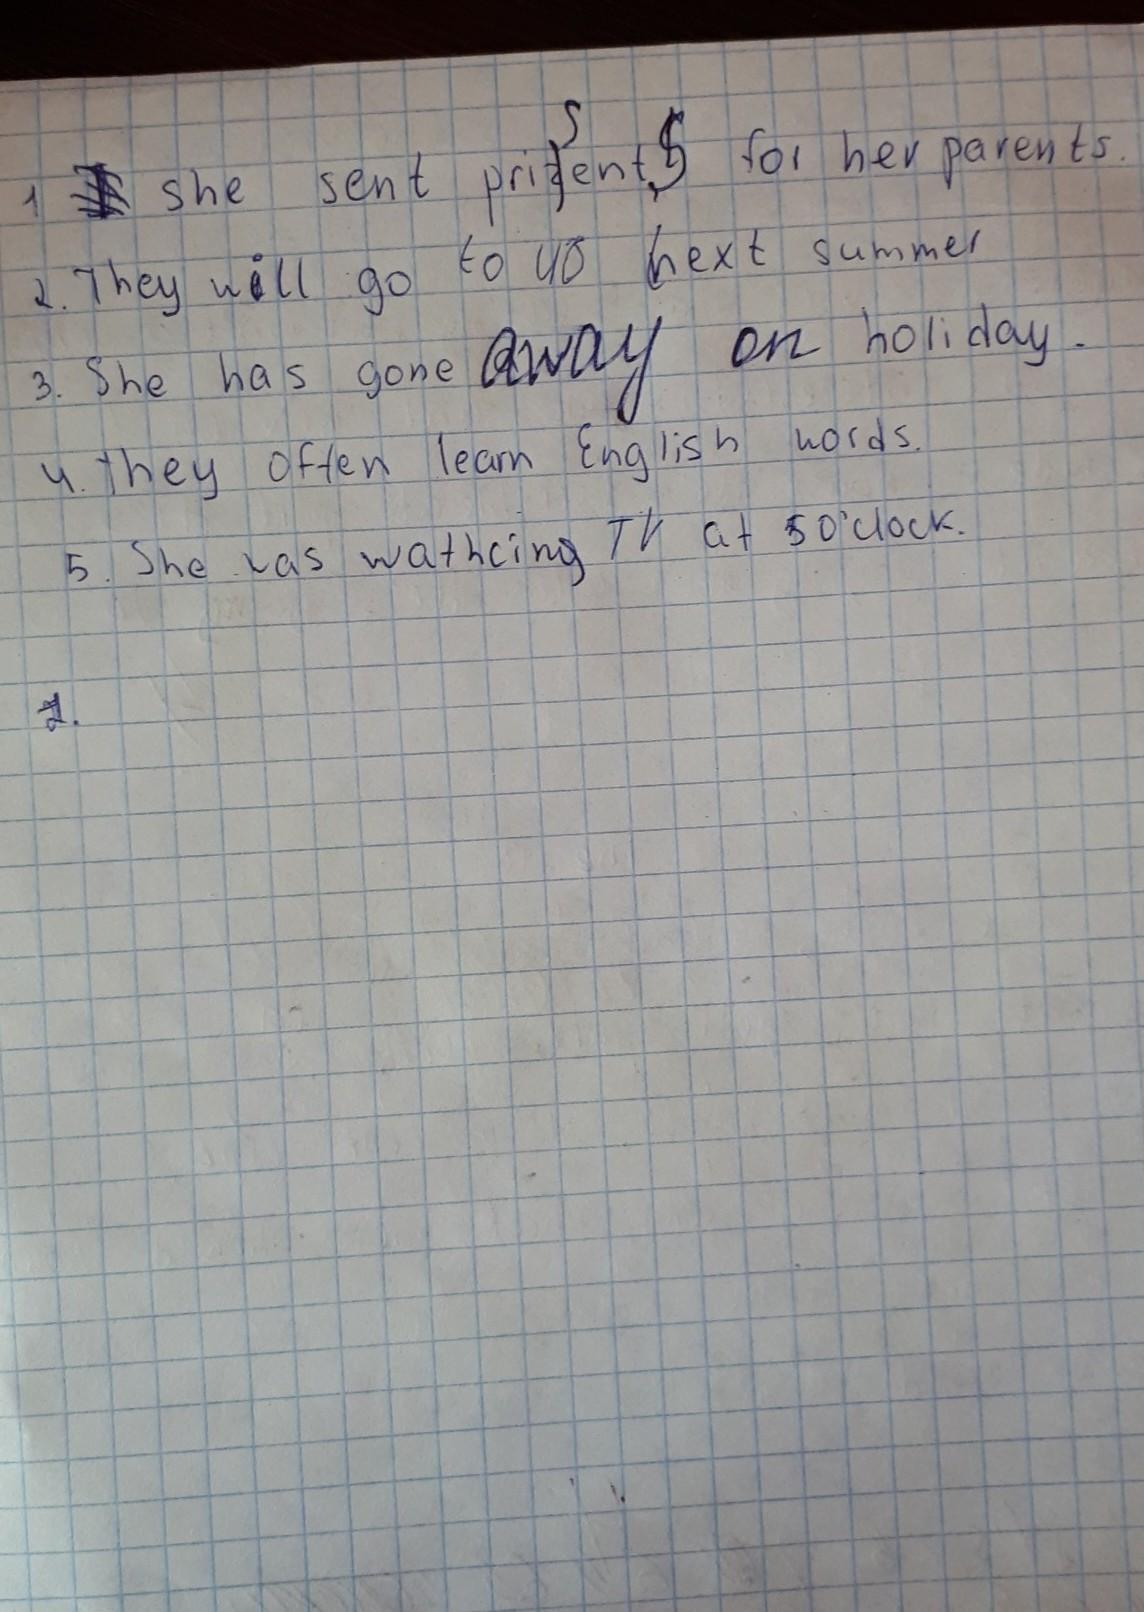 1 she sent prisents for her parents.
2. They will go to US next summer
3. She has gone away on holiday.
4. they often learn English words.
5. She was wathcing TV at 5 o'clock.